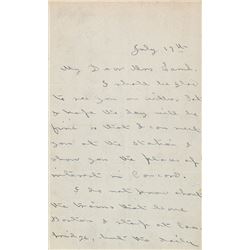 July 17th
My Dear Mrs Lamb.
I shall be glad
to see you on
I hope the day will be
fine so that I can meet
you at the station &
show you the places of
interest in Concord.
I do not know about
the trains that leave
Boston & stop at Cam-
bridge, but the